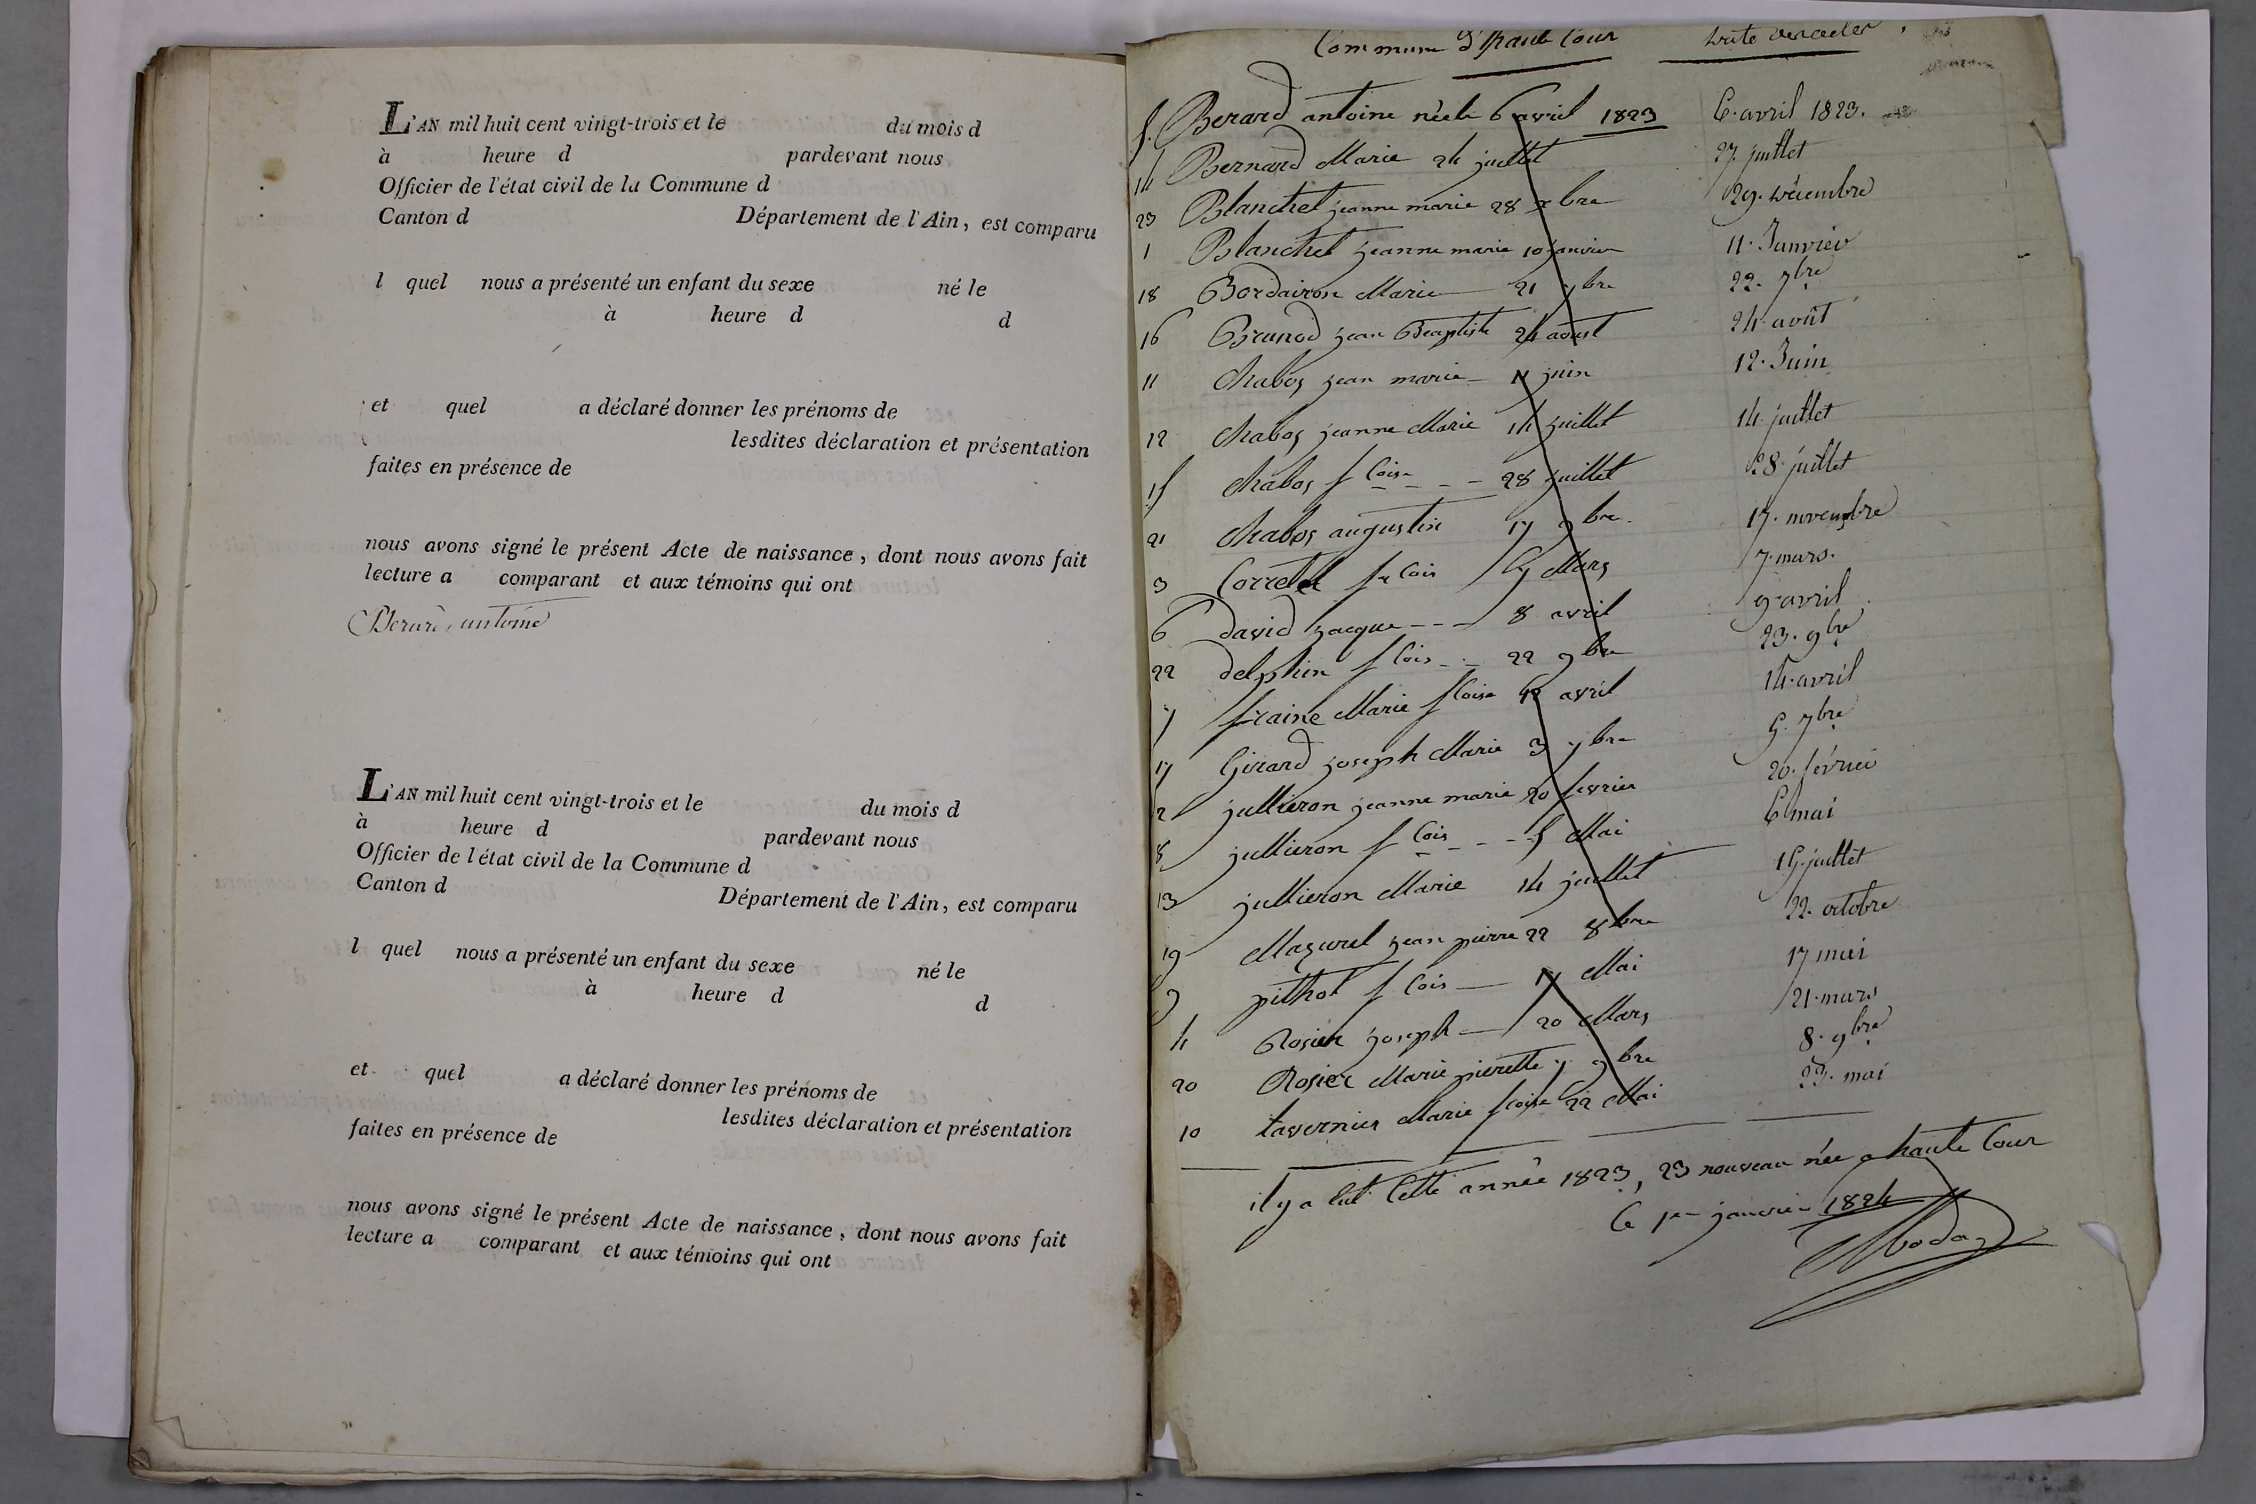 L'AN mil huit cent vingt-trois et le du mois d
à heure d pardevant nous
Officier de l'état civil de la Commune d
Canton d Département de l'Ain, est comparu
l quel nous a présenté un enfant du sexe né le
à heure d d
et quel a déclaré donner les prénoms de
lesdites déclaration et présentation
faites en présence de
nous avons signé le présent Acte de naissance, dont nous avons fait
lecture a comparant et aux témoins qui ont
Berard, antoine
L'AN mil huit cent vingt-trois et le du mois d
à heure d pardevant nous
Officier de l'état civil de la Commune d
Canton d Département de l'Ain, est comparu
l quel nous a présenté un enfant du sexe né le
à heure d d
et quel a déclaré donner les prénoms de
lesdites déclaration et présentation
faites en présence de
nous avons signé le présent Acte de naissance, dont nous avons fait
lecture a comparant et aux témoins qui ont
Commune d'haute Cour
5. Berard antoine née le 6 avril 1823 6. avril 1823.
14 Bernard Marie 24 juillet 27. juillet
23 Blanchet jeanne marie 28 xbre 29. décembre
1 Blanchet jeanne marie 10 janvier 11. Janvier
18 Bordairon Marie 21 7bre 22. 7bre
16 Brunod jean Baptiste 24 aoust 24. août
11 Chaboz jean marie 11 juin 12. Juin
12 Chaboz jeanne Marie 14 juillet 14. juillet
15 Chaboz fcoise 28 juillet 28. juillet
21 Chaboz augustin 17 9bre 17. novembre
3 Corretel frcois 7 Mars 7. mars.
6 david jacque 8 avril 9. avril
22 delphin fcois 22 9bre 23. 9bre
7 fraine Marie fcoise 12 avril 14. avril
17 Girard joseph Marie 3 7bre 5. 7bre
2 jullieron jeanne marie 20 fevrier 20. février
8 jullieron fcois 5 Mai 6 mai
13 jullieron Marie 14 juillet 15. juillet
19 Mazurel jean pierre 22 8bre 22. octobre
9 pithot fcois 17 Mai 17 mai
4 Rosier joseph 20 Mars 21. mars
20 Rosier Marie pierette 7 9bre 8. 9bre
10 tavernier Marie fcoise 22 Mai 23. mai
il y a eut Cette année 1823, 23 nouveau née a haute Cour
Ce 1er janvier 1824